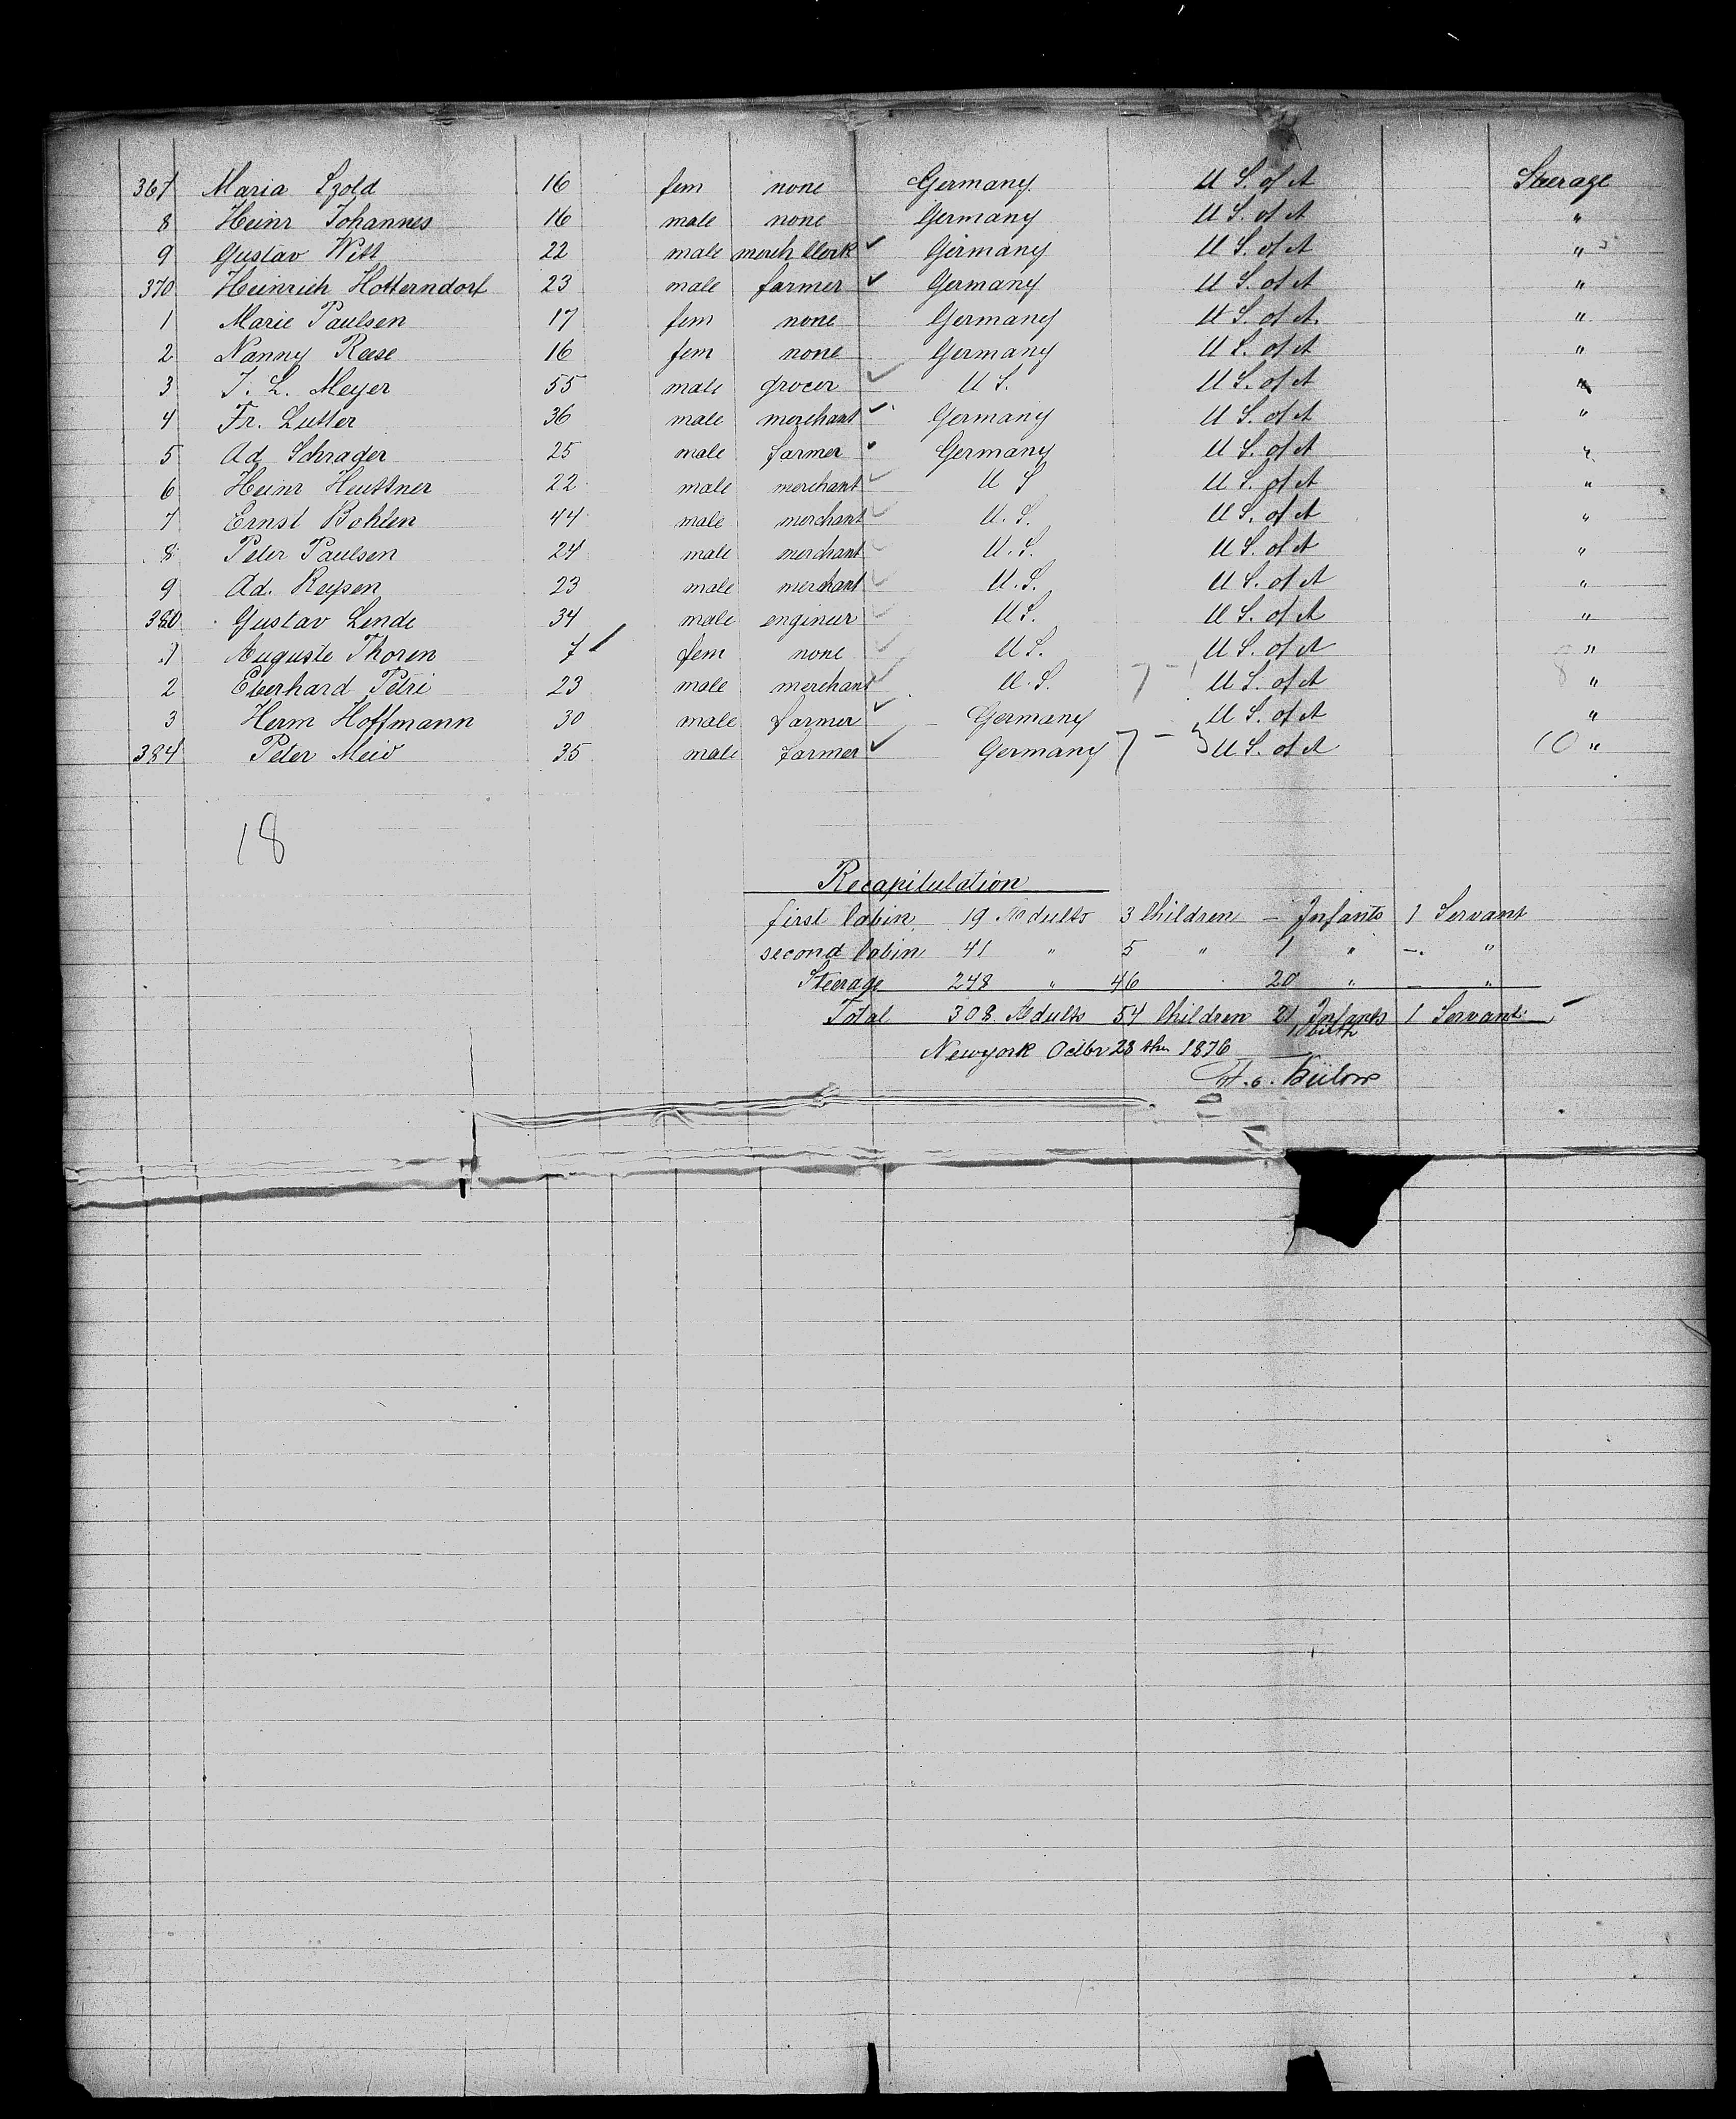 367 Maria Szold 16 fem none Germany U S. of A Steerage
8 Heinr Johannes 16 male none Germany U S. of A "
9 Gustav Witt 22 male merch Clerk ✓ Germany U S. of A "
370 Heinrich Hotterndorf 23 male farmer ✓ Germany U S. of A "
1 Marie Paulsen 17 fem none Germany U S. of A. "
2 Nanny Reese 16 fem none Germany U S. of A "
3 J. L. Meyer 55 male grocer ✓ U S. U S. of A "
4 Fr. Lutter 36 male merchant ✓ Germany U S. of A "
5 Ad Schrader 25 male farmer ✓ Germany U S. of A "
6 Heinr Heuttner 22 male merchant ✓ U S U S. of A "
7 Ernst Bohlen 44 male merchant ✓ U. S. U S. of A "
8 Peter Paulsen 24 male merchant ✓ U. S. U S. of A "
9 Ad. Reysen 23 male merchant ✓ U. S. U S. of A "
380 Gustav Linde 34 male engineer ✓ U S. U S. of A "
1 Auguste Thoren 7 fem none ✓ U S. U S. of A "
2 Eberhard Petri 23 male merchant ✓ U. S. 7 - 1 U S. of A 8 "
3 Herm Hoffmann 30 male farmer ✓ Germany U S. of A "
384 Peter Meio 35 male farmer ✓ Germany 7 - 3 U S. of A 10 "
18
Recapitulation
first Cabin 19 Adults 3 Children - Infants 1 Servant
second Cabin 41 " 5 " 1 " - "
Steerage 248 " 46 20 " - "
Total 308 Adults 54 Children 21 Infants 1 Servant
1 birth
Newyork Octbr 28 th 1876
Bülow